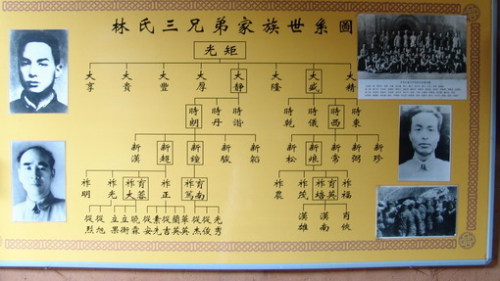 林氏三兄弟家族世系圖
光矩
大亨 大貴 大豐 大厚 大靜 大隆 大盛 大精
時朗 時丹 時諧 時乾 時儀 時西 時東
新漢 新超 新鐘 新韜 新松 新常 新弼 新珍
祚明 祚光 祚大 育蓉 祚正 祚篤 育南 祚農 祚茂 祚培 育英 祚福
從烈 從旭 立果 立衡 曉森 從安 素先 從吉 蘭英 華英 從杰 從俊 光秀 漢雄 漢南 肖俠